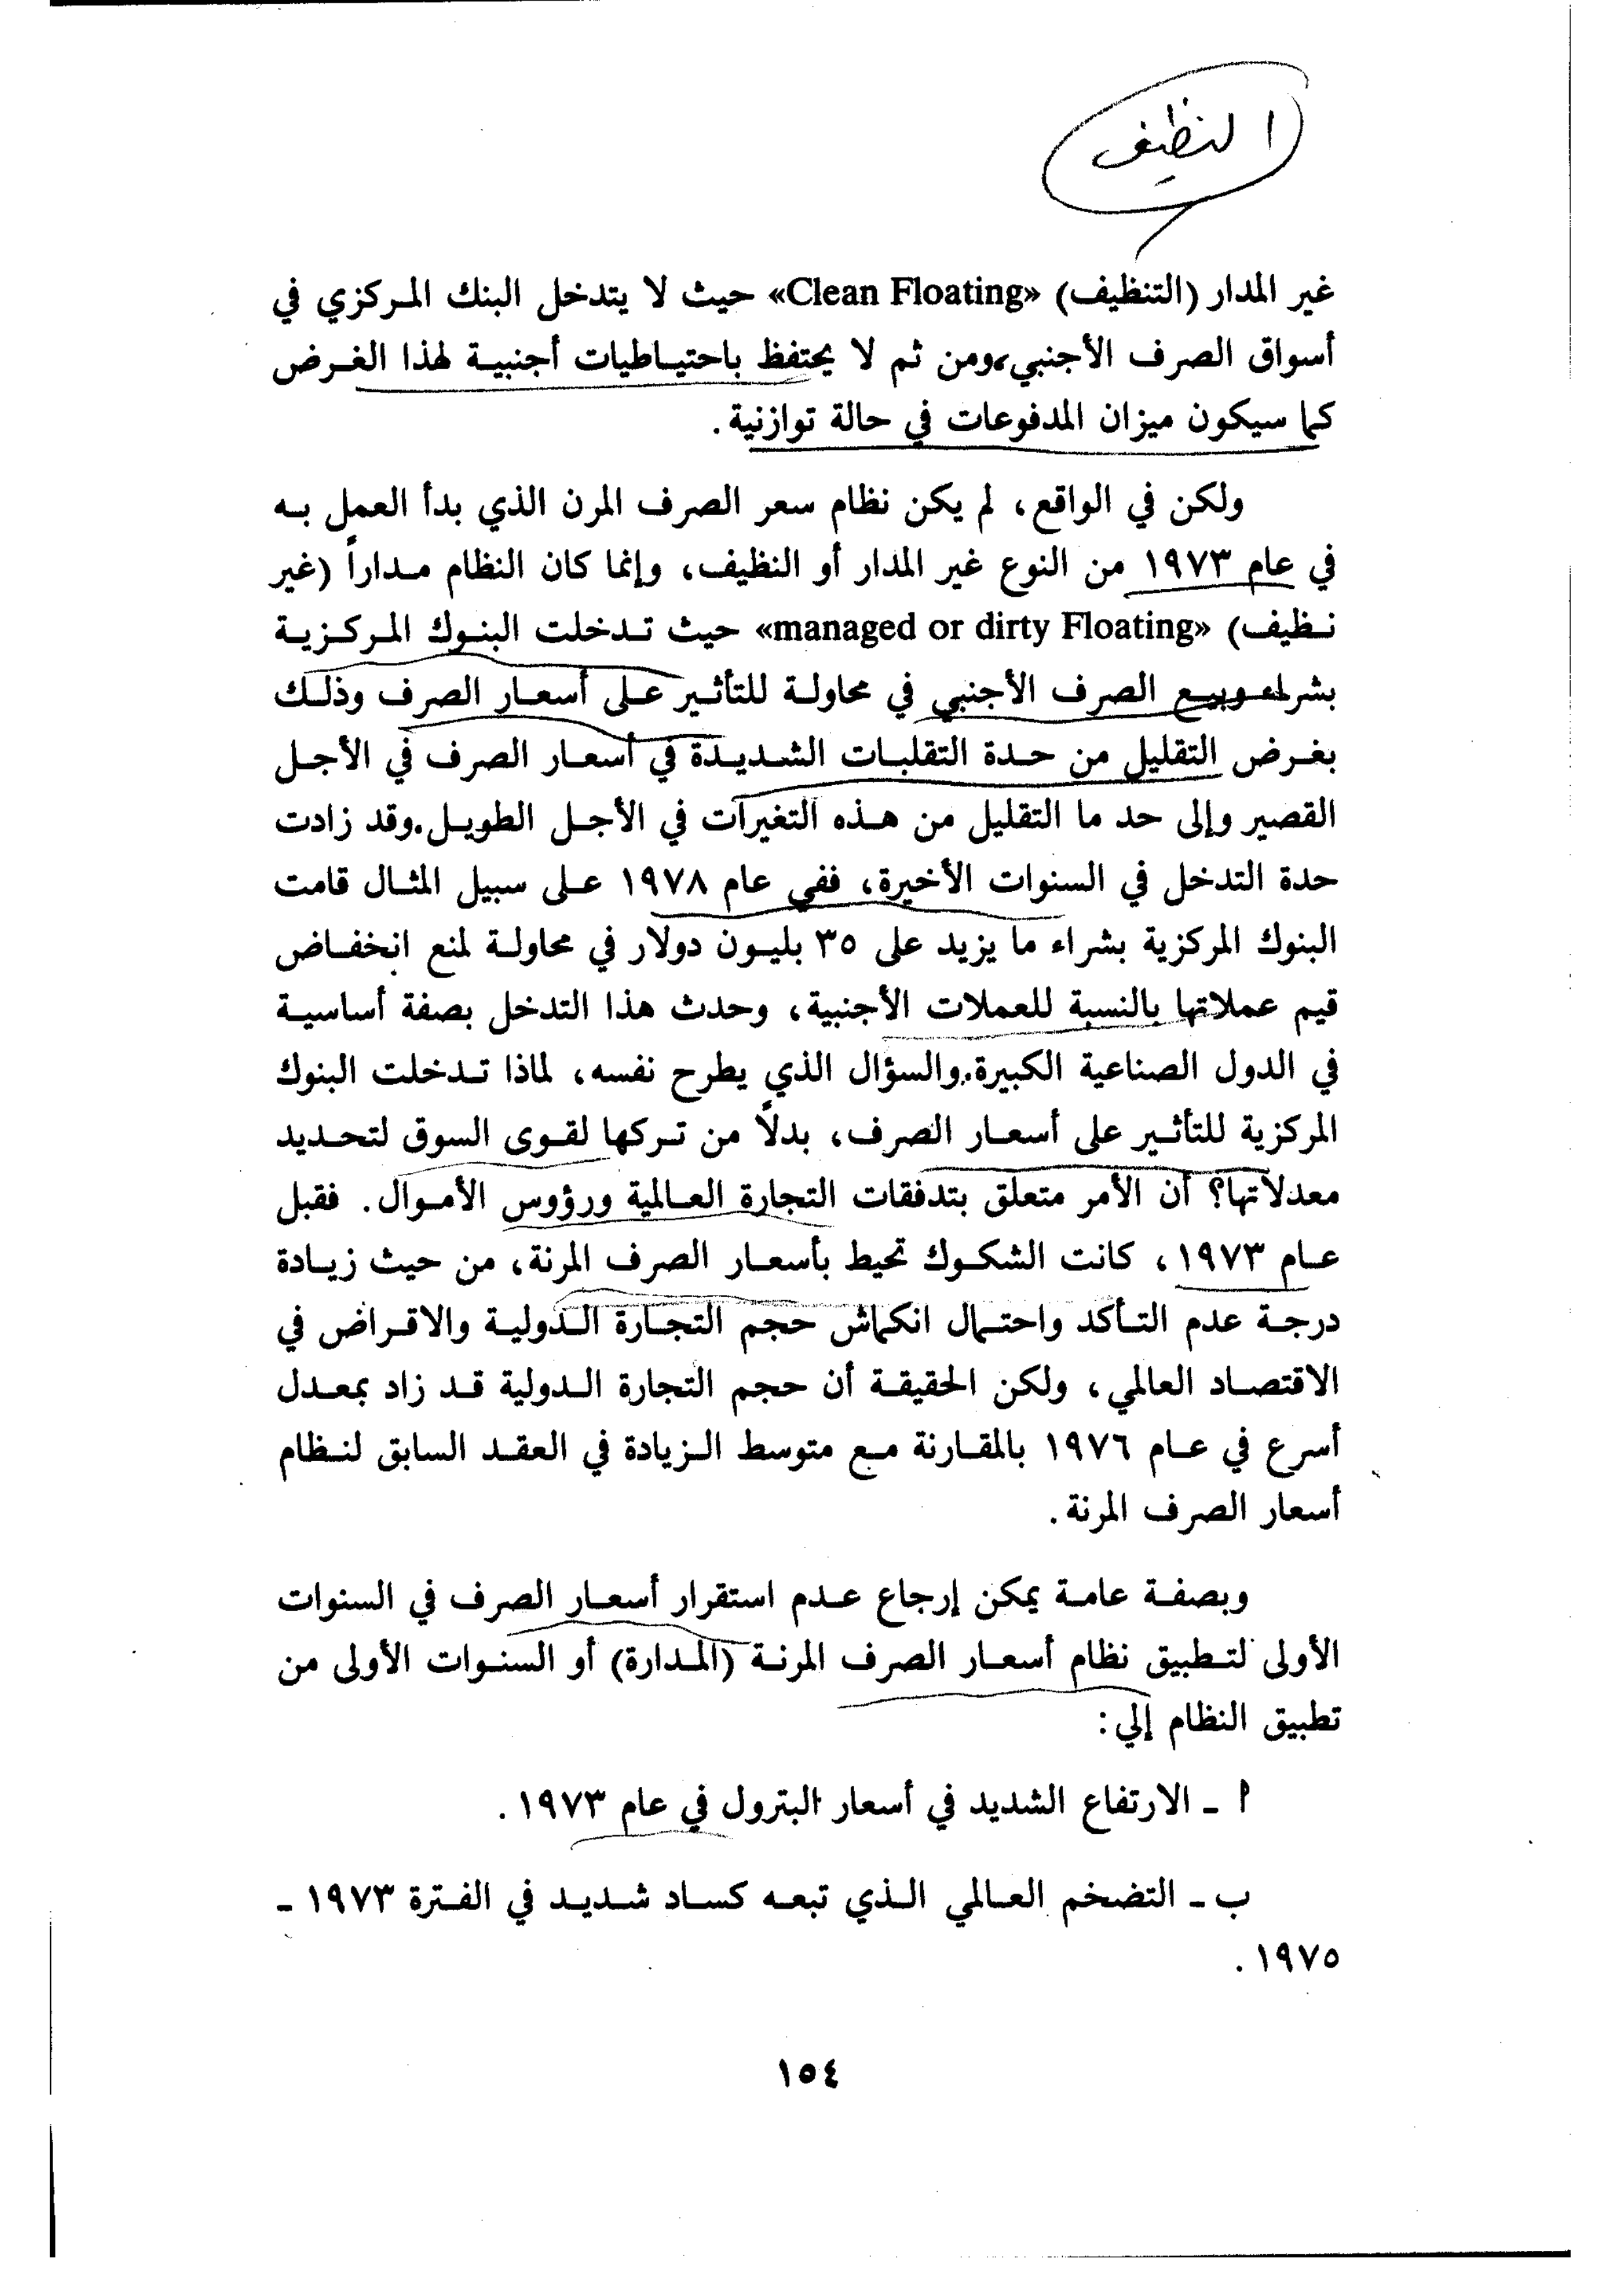 النظيف
غير المدار (التنظيف) «Clean Floating» حيث لا يتدخل البنك المركزي في
أسواق الصرف الأجنبي، ومن ثم لا يحتفظ باحتياطيات أجنبية لهذا الغرض
كما سيكون ميزان المدفوعات في حالة توازنية.
ولكن في الواقع، لم يكن نظام سعر الصرف المرن الذي بدأ العمل به
في عام ١٩٧٣ من النوع غير المدار أو النظيف، وإنما كان النظام مداراً (غير
نظيف) «managed or dirty Floating» حيث تدخلت البنوك المركزية
بشراء وبيع الصرف الأجنبي في محاولة للتأثير على أسعار الصرف وذلك
بغرض التقليل من حدة التقلبات الشديدة في أسعار الصرف في الأجل
القصير وإلى حد ما التقليل من هذه التغيرات في الأجل الطويل. وقد زادت
حدة التدخل في السنوات الأخيرة، ففي عام ١٩٧٨ على سبيل المثال قامت
البنوك المركزية بشراء ما يزيد على ٣٥ بليون دولار في محاولة لمنع انخفاض
قيم عملاتها بالنسبة للعملات الأجنبية، وحدث هذا التدخل بصفة أساسية
في الدول الصناعية الكبيرة. والسؤال الذي يطرح نفسه، لماذا تدخلت البنوك
المركزية للتأثير على أسعار الصرف، بدلاً من تركها لقوى السوق لتحديد
معدلاتها؟ أن الأمر متعلق بتدفقات التجارة العالمية ورؤوس الأموال. فقبل
عام ١٩٧٣، كانت الشكوك تحيط بأسعار الصرف المرنة، من حيث زيادة
درجة عدم التأكد واحتمال انكماش حجم التجارة الدولية والاقراض في
الاقتصاد العالمي، ولكن الحقيقة أن حجم التجارة الدولية قد زاد بمعدل
أسرع في عام ١٩٧٦ بالمقارنة مع متوسط الزيادة في العقد السابق لنظام
أسعار الصرف المرنة.
وبصفة عامة يمكن إرجاع عدم استقرار أسعار الصرف في السنوات
الأولى لتطبيق نظام أسعار الصرف المرنة (المدارة) أو السنوات الأولى من
تطبيق النظام إلي:
أ - الارتفاع الشديد في أسعار البترول في عام ١٩٧٣.
ب - التضخم العالمي الذي تبعه كساد شديد في الفترة ١٩٧٣ -
١٩٧٥.
١٥٤